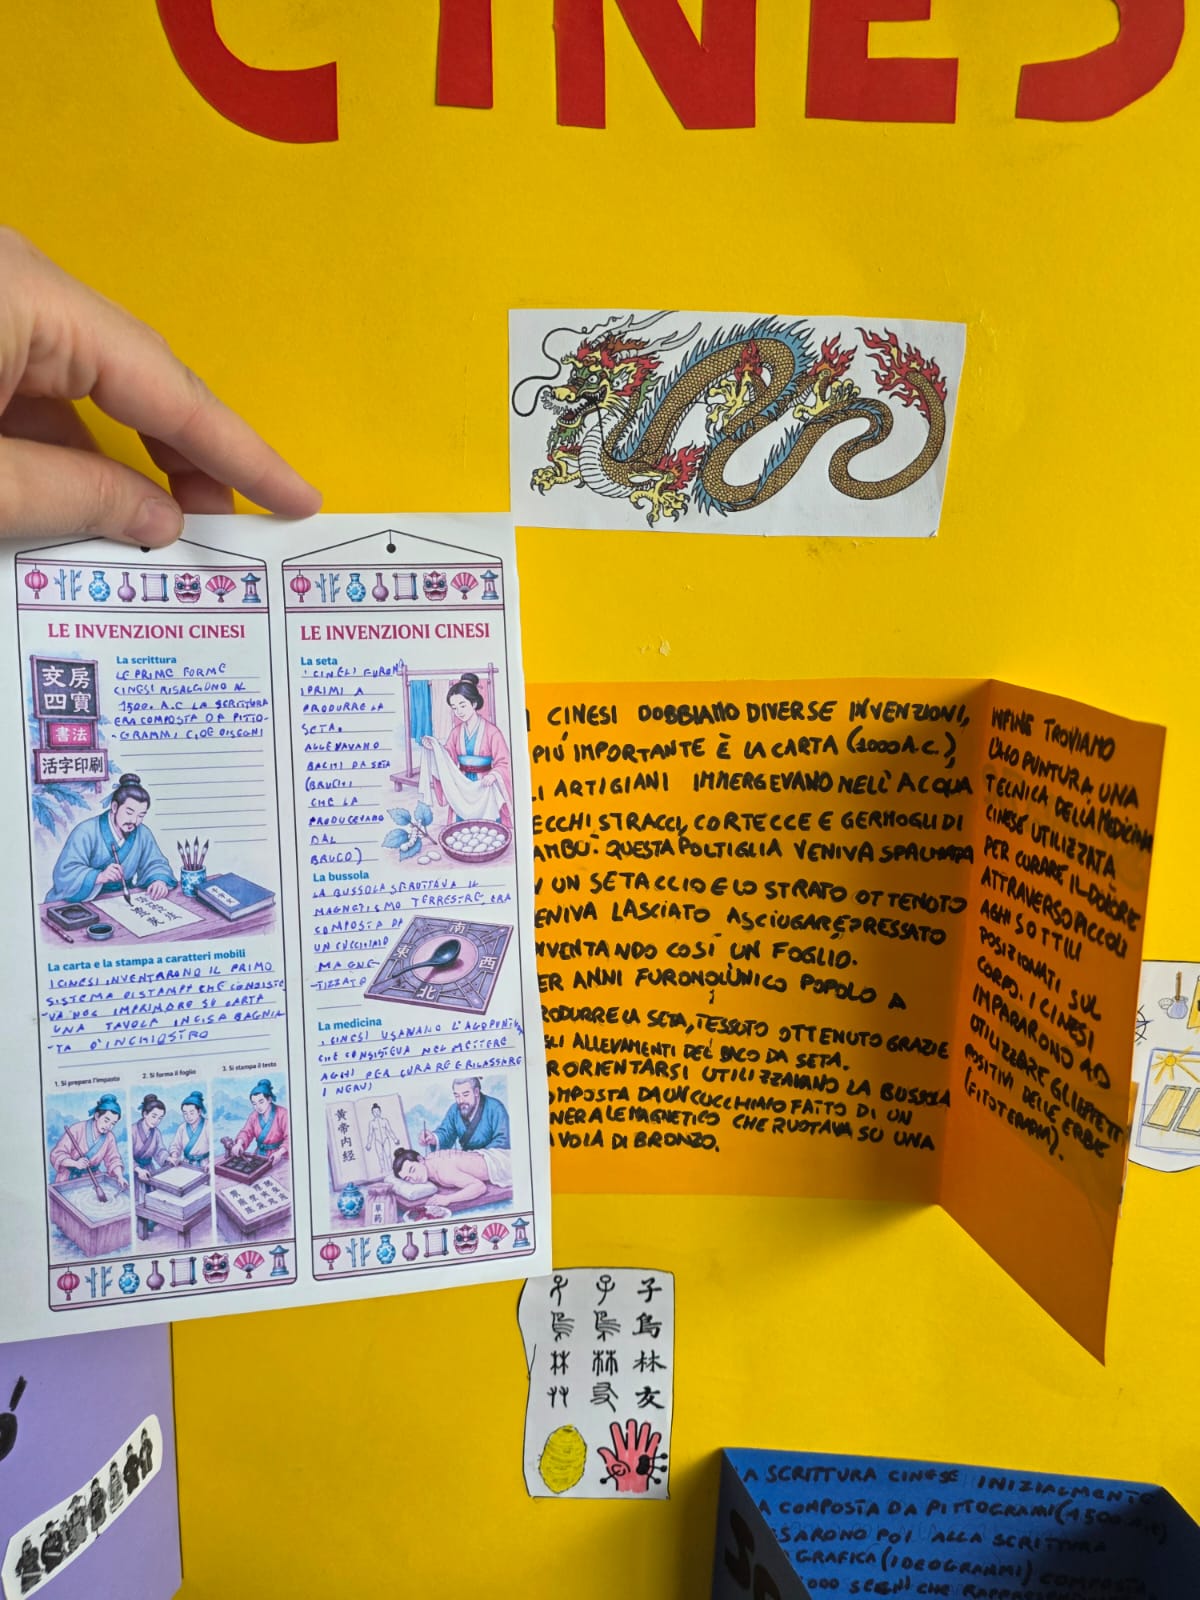 CINES
LE INVENZIONI CINESI
La scrittura
LE PRIME FORME
CINESI RISALGONO AL
1500. A.C LA SCRITTURA
ERA COMPOSTA DA PITTO-
-GRAMMI CIOÈ DISEGNI
文房
四寶
書法
活字印刷
La carta e la stampa a caratteri mobili
I CINESI INVENTARONO IL PRIMO
SISTEMA DI STAMPA CHE CONSISTE-
-VA NEL IMPRIMERE SU CARTA
UNA TAVOLA INCISA BAGNA-
-TA D'INCHIOSTRO
1. Si prepara l'impasto
2. Si forma il foglio
3. Si stampa il testo
LE INVENZIONI CINESI
La seta
I CINESI FURONO
I PRIMI A
PRODURRE LA
SETA.
ALLEVAVANO
BACHI DA SETA
(BRUCHI
CHE LA
PRODUCEVANO
DAL
BRUCO)
La bussola
LA BUSSOLA SFRUTTAVA IL
MAGNETISMO TERRESTRE, ERA
COMPOSTA DA
UN CUCCHIAIO
MAGNE-
-TIZZATO
南
東
西
北
La medicina
I CINESI USAVANO L'AGOPUNTURA
CHE CONSISTEVA NEL METTERE
AGHI PER CURARE E RILASSARE
I NERVI
黃帝內经
草药
I CINESI DOBBIAMO DIVERSE INVENZIONI,
PIÙ IMPORTANTE È LA CARTA (1000 A.C.),
LI ARTIGIANI IMMERGEVANO NELL'ACQUA
ECCHI STRACCI, CORTECCE E GERMOGLI DI
AMBÙ. QUESTA POLTIGLIA VENIVA SPALMATA
UN SETACCIO E LO STRATO OTTENUTO
ENIVA LASCIATO ASCIUGARE E PRESSATO
VENTANDO COSÌ UN FOGLIO.
ER ANNI FURONO L'UNICO POPOLO A
RODURRE LA SETA, TESSUTO OTTENUTO GRAZIE
GLI ALLEVAMENTI DEL BACO DA SETA.
R ORIENTARSI UTILIZZAVANO LA BUSSOLA
OMPOSTA DA UN CUCCHIAIO FATTO DI UN
NERALE MAGNETICO CHE RUOTAVA SU UNA
VOLA DI BRONZO.
INFINE TROVIAMO
L'AGO PUNTURA, UNA
TECNICA DELLA MEDICINA
CINESE UTILIZZATA
PER CURARE IL DOLORE
ATTRAVERSO PICCOLI
AGHI SOTTILI
POSIZIONATI SUL
CORPO. I CINESI
IMPARARONO AD
UTILIZZARE GLI EFFETTI
POSITIVI DELLE ERBE
(FITOTERAPIA).
子
鳥
林
友
A SCRITTURA CINESE INIZIALMENTE
A COMPOSTA DA PITTOGRAMMI (1500 A.C)
SSARONO POI ALLA SCRITTURA
GRAFICA (IDEOGRAMMI) COMPOSTA
000 SEGNI CHE